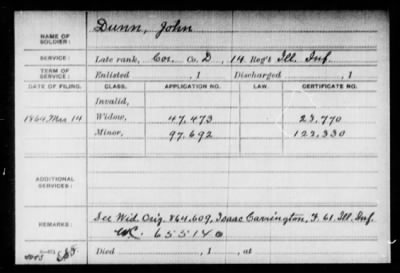 Dunn, John
NAME OF SOLDIER:
SERVICE: Late rank, Cor. Co. D, 14 Reg't Ill. Inf.
TERM OF SERVICE: Enlisted , 1 Discharged , 1
DATE OF FILING. CLASS. APPLICATION NO. LAW. CERTIFICATE NO.
Invalid,
1864 Mar 14 Widow, 47,473 23,770
Minor, 97,692 122,330
ADDITIONAL SERVICES:
REMARKS: See Wid. Orig. 864.609, Isaac Carrington, F. 61 Ill. Inf.
WC 655140
Died , 1 , at